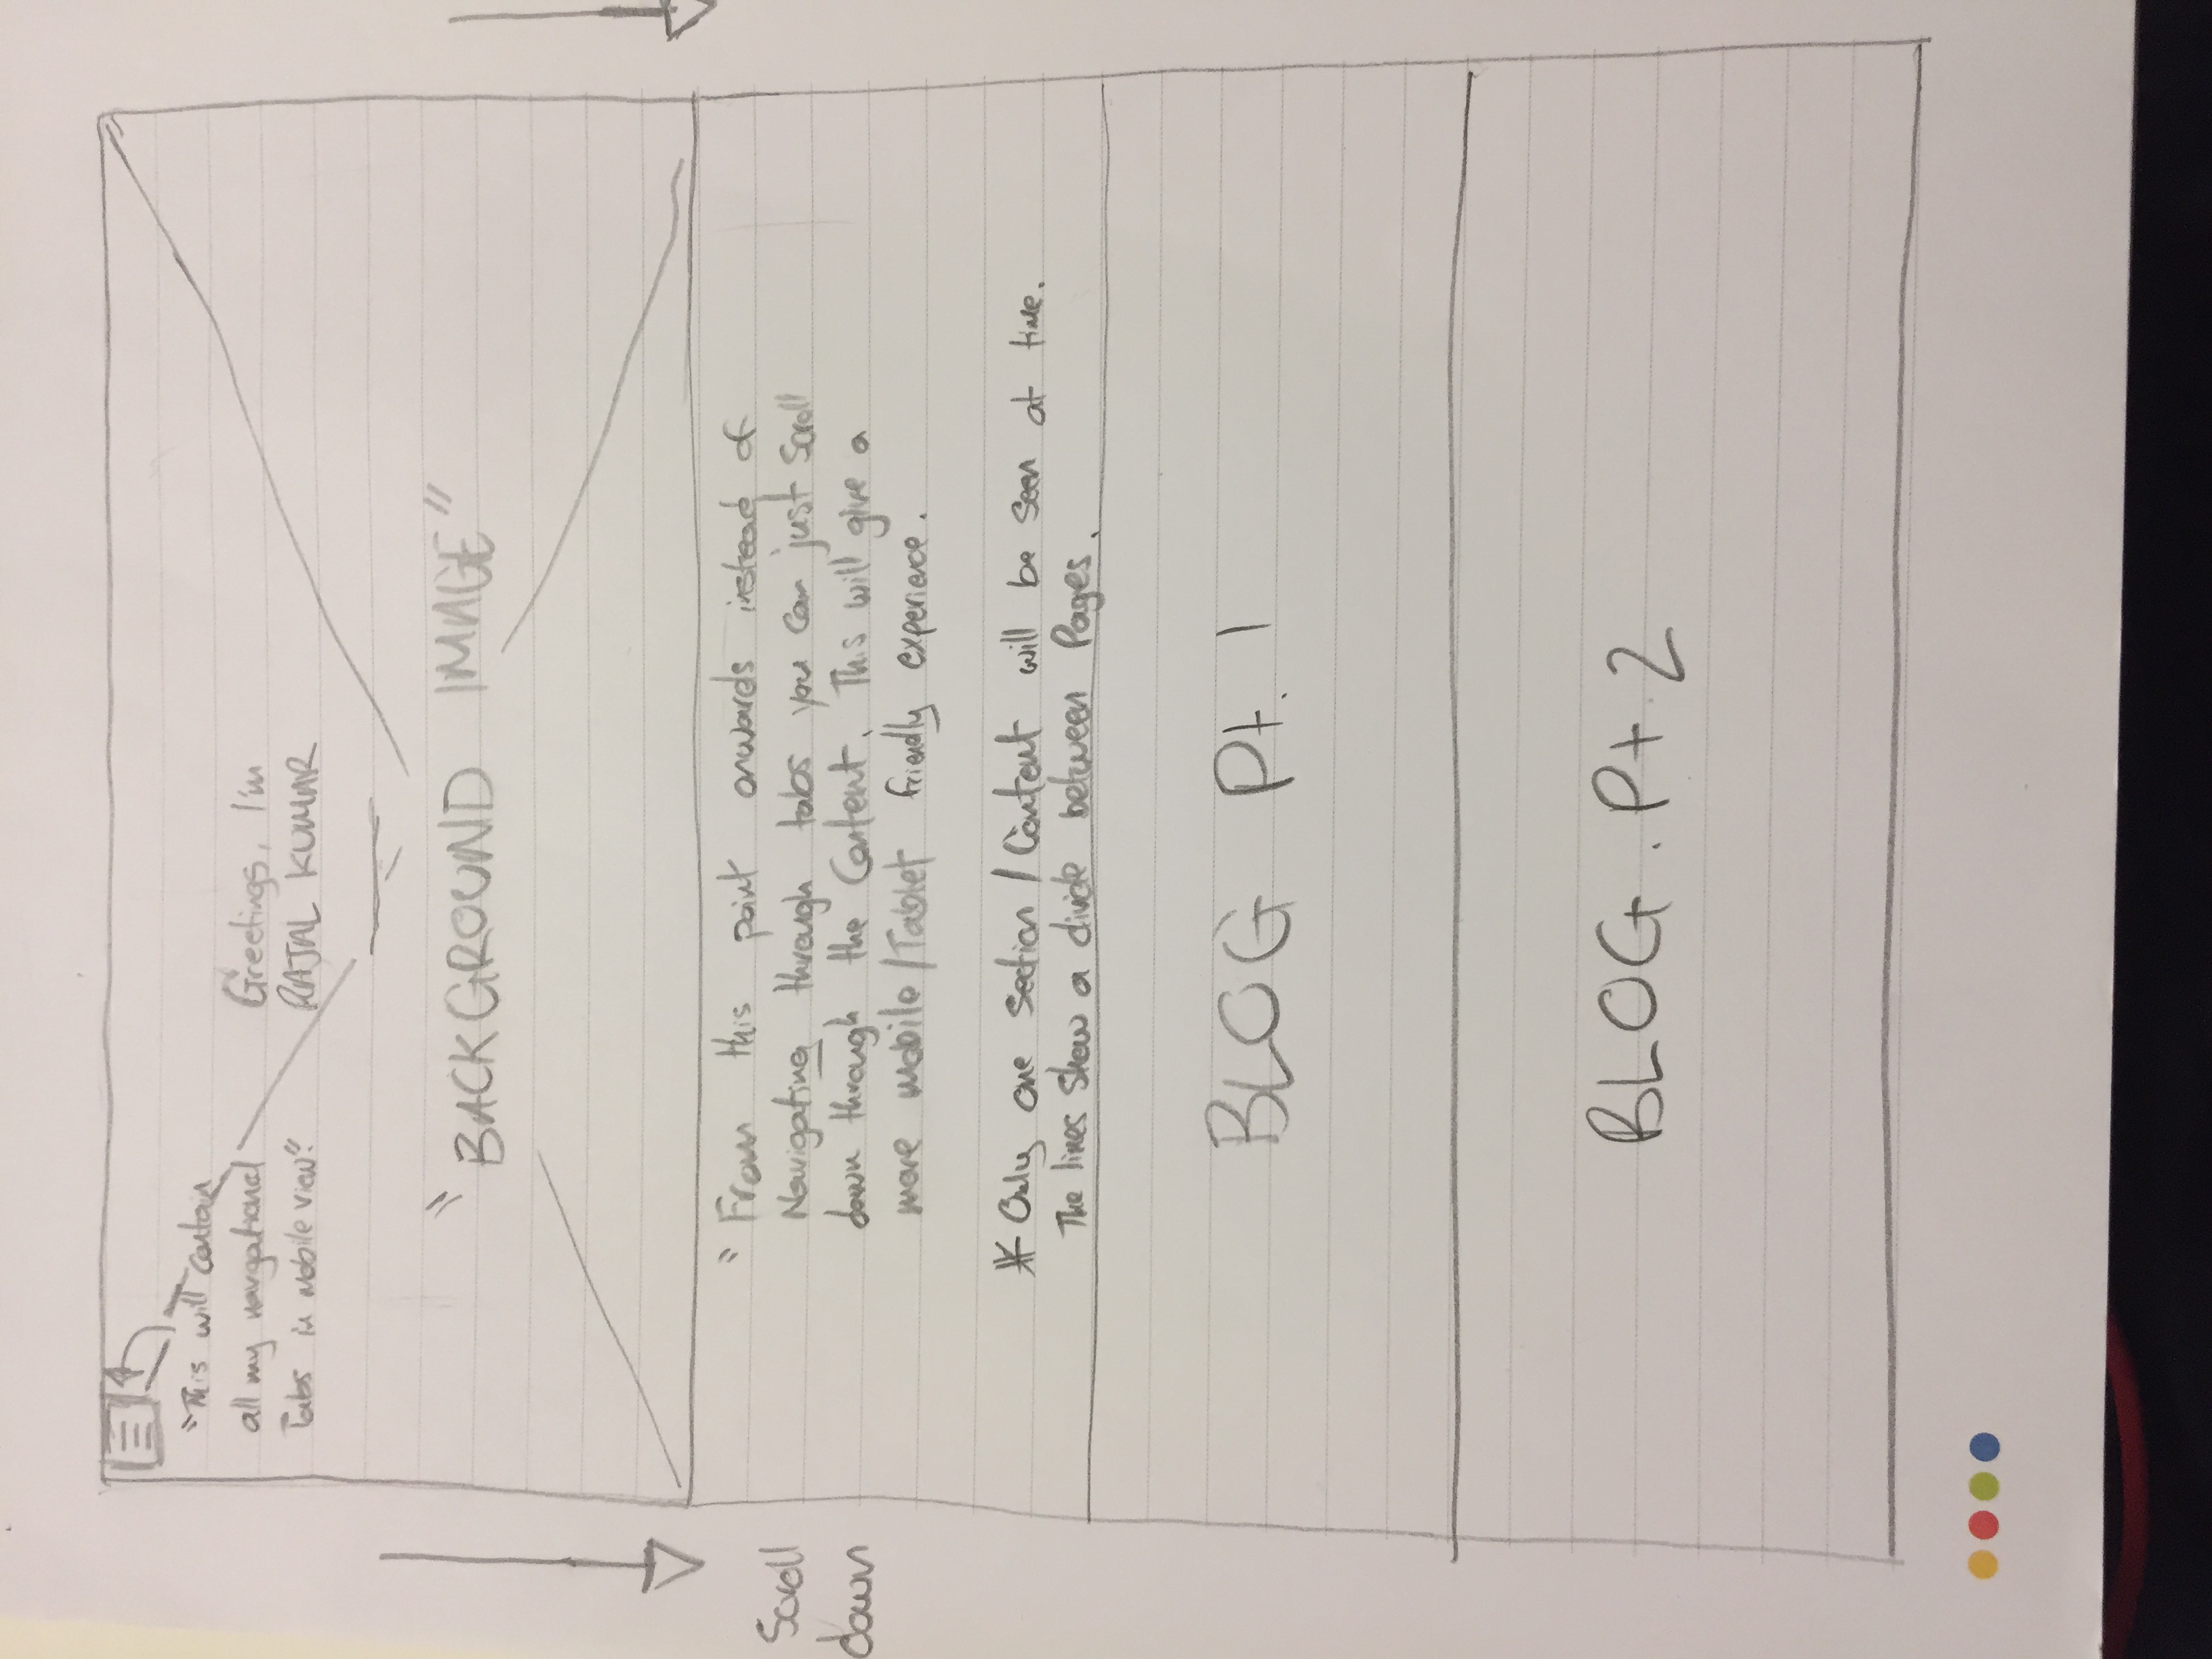 "This will contain
all my navgational
Tabs in mobile view"
Greetings, I'm
RAJAL KUMAR
"BACKGROUND IMAGE"
Scroll
down
"From this point onwards instead of
Navigating through tabs you can just scroll
down through the Content. This will give a
more mobile/Tablet friendly experience.
* Only one section/Content will be seen at time.
The lines show a divide between Pages.
BLOG Pt. 1
BLOG . Pt. 2